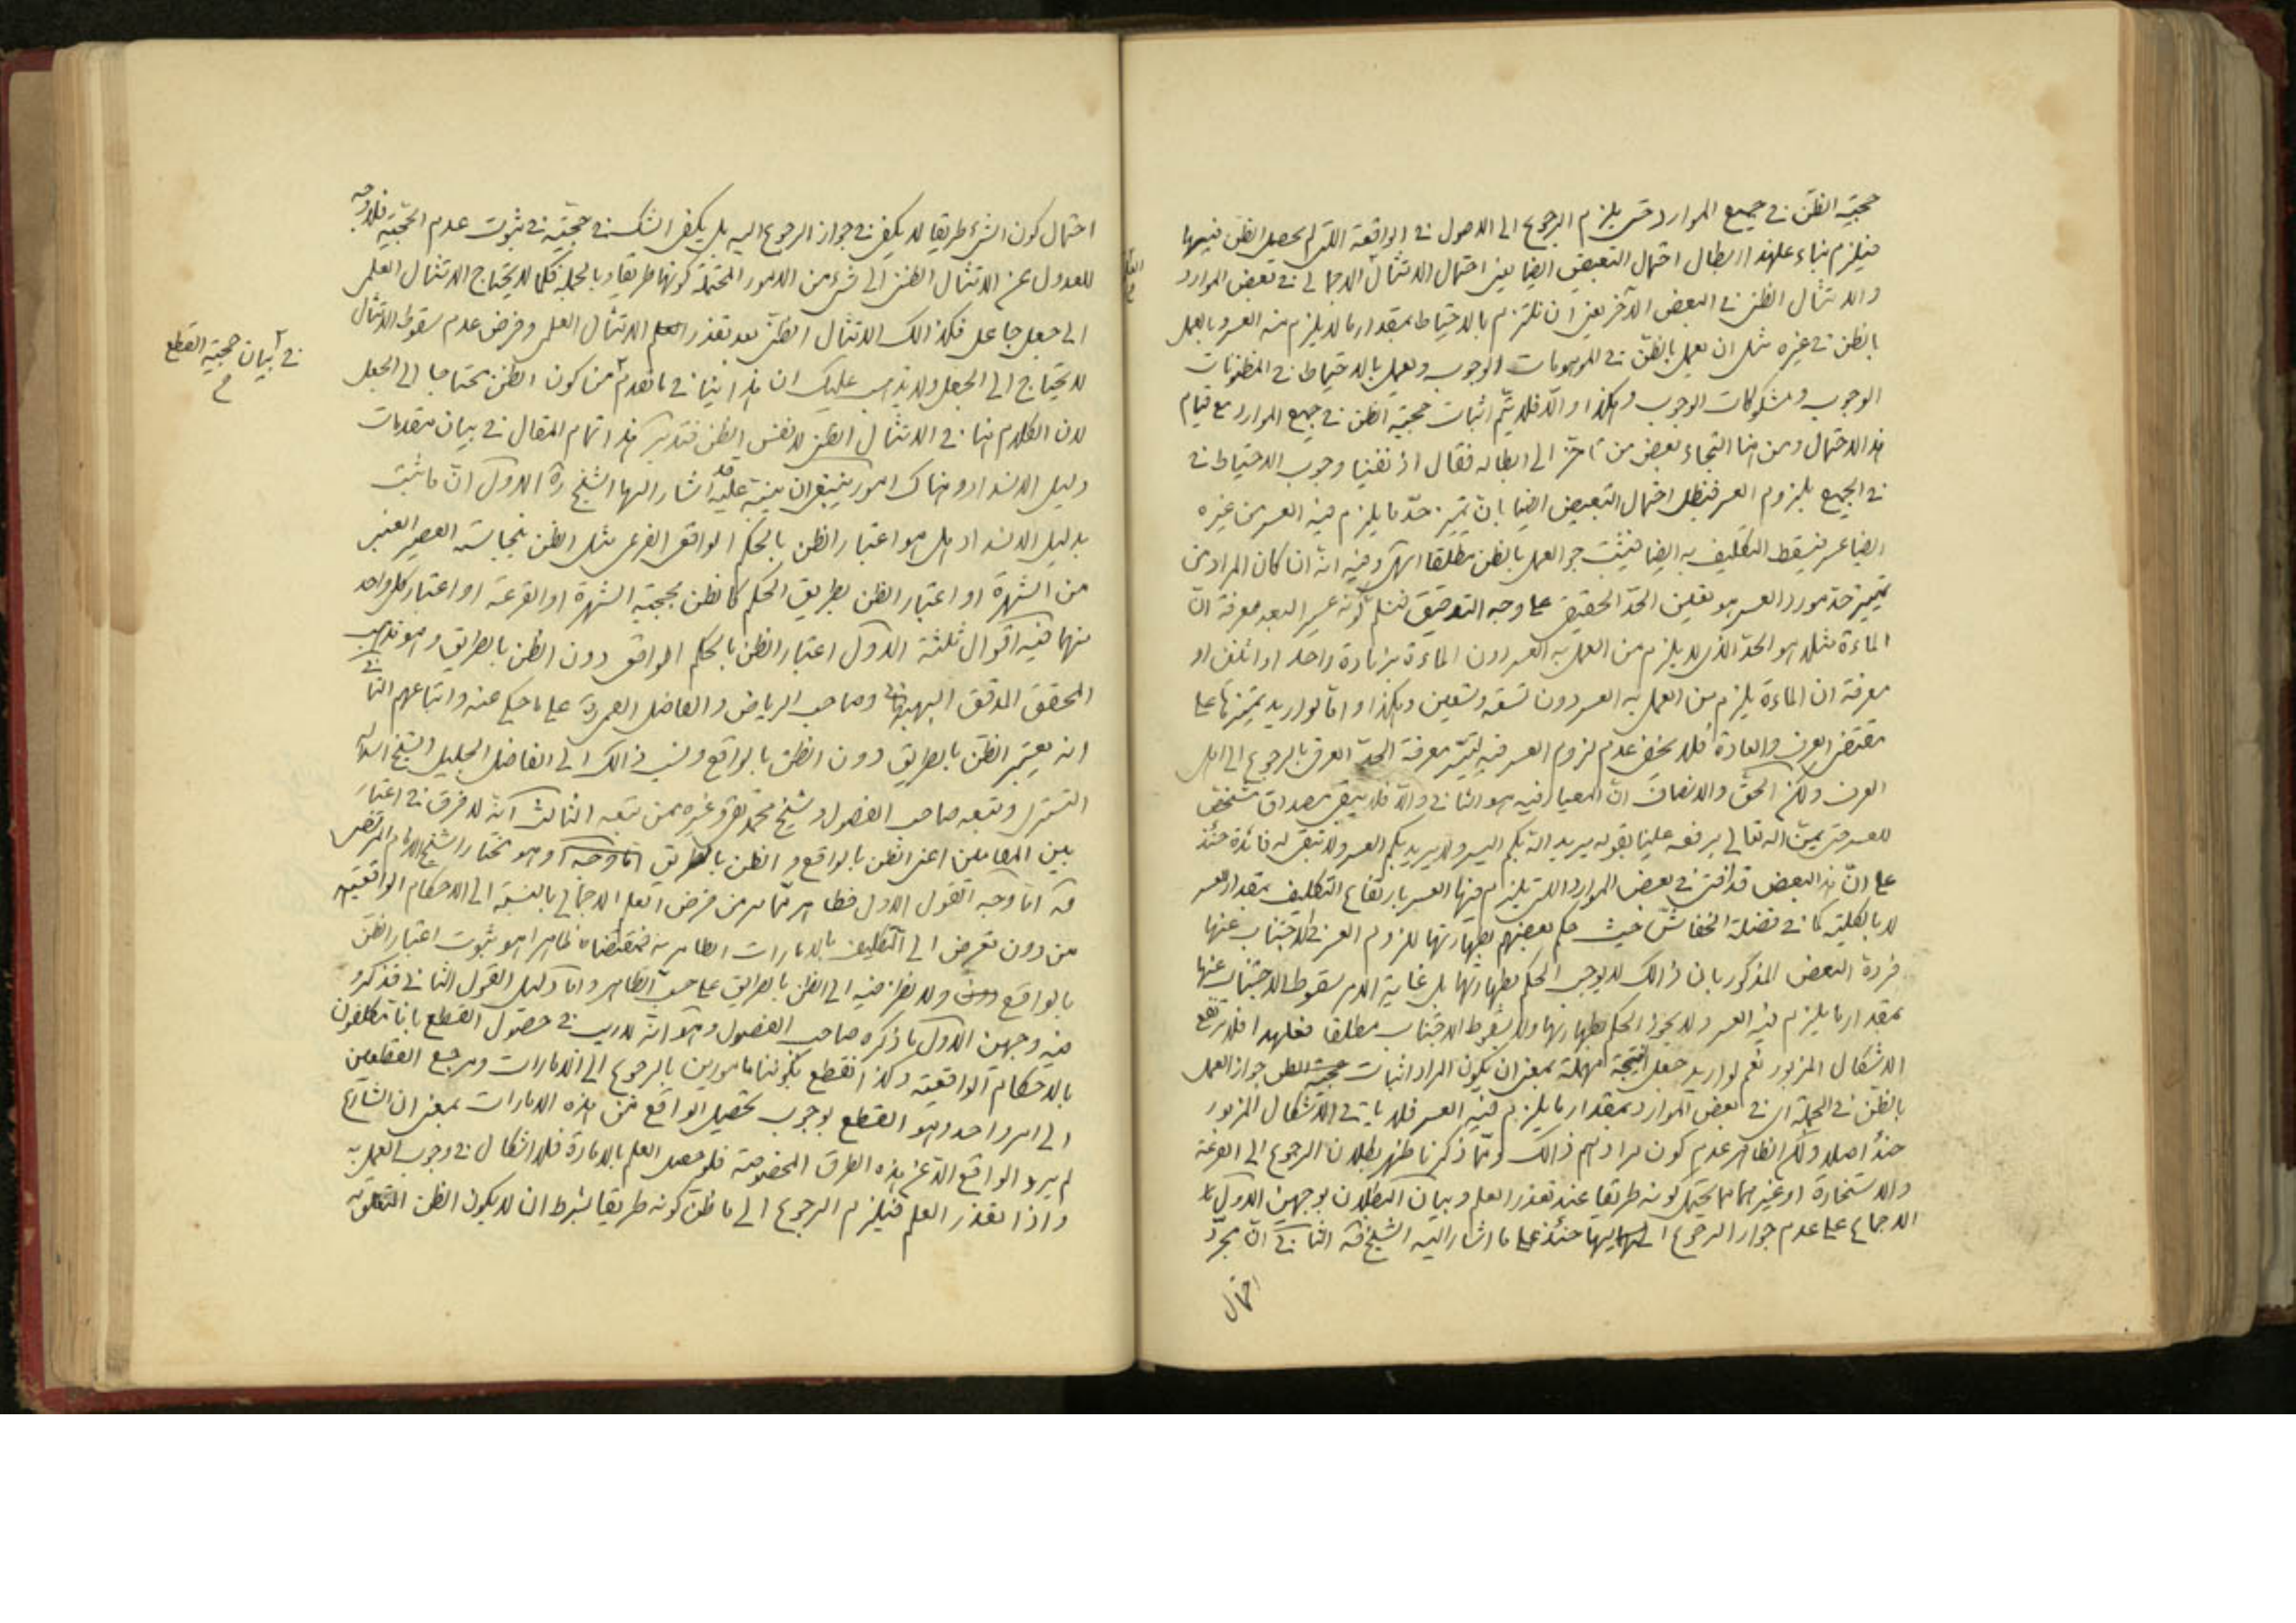 حجية الظن في جميع الموارد حتى يلزم الرجوع الى الاصول في الواقعة التي لم يحصل الظن فيها
فيلزم بناء على هذا ابطال احتمال التبعيض ايضا يعني احتمال الامتثال الاجمالي في بعض الموارد
والامتثال الظني في البعض الآخر يعني ان نلتزم بالاحتياط بمقدار ما لا يلزم منه العسر وبالعمل
بالظن في غيره مثل ان يعمل بالظن في الموهومات الوجوب ويعمل بالاحتياط في المظنونات
الوجوب ومشكوكات الوجوب وهكذا والّا فلا يتم اثبات حجية الظن في جميع الموارد مع قيام
هذا الاحتمال ومن هنا التجاء بعض من تاخر الى ابطاله فقال اذ نفينا وجوب الاحتياط في
في الجميع بلزوم العسر فيبطل احتمال التبعيض ايضا بان تميز حدّ ما يلزم فيه العسر من غيره
ايضا عسر فيسقط التكليف به ايضا فيثبت جواز العمل بالظن مطلقا انتهى وفيه انه ان كان المراد من
تميز حد مورد العسر هو تعيين الحدّ الحقيقي على وجه التدقيق فنسلم كونه عسير البعد معرفة انّ
الماءة مثلا هو الحدّ الذي لا يلزم من العمل به العسر دون الماءة بزيادة واحد او اثنين او
معرفة ان الماءة يلزم من العمل به العسر دون تسعة وتسعين وهكذا واما لو اريد تميزها على
مقتضى العرف والعادة فلا يخفى عدم لزوم العسر فيه لتيسّر معرفة الحدّ العرفي بالرجوع الى اهل
العرف ولكن الحق والانصاف انّ المعيار فيه هو الثاني والّا فلا يبقى مصداق متحقق
للعسر حتى يمنّ الله تعالى برفعه علينا بقوله يريد الله بكم اليسر ولا يريد بكم العسر ولا تبقى له فائدة حنئذ
على انّ هذا البعض قد افتى في بعض الموارد التي يلزم فيها العسر بارتفاع التكليف بمقدار العسر
لا بالكلية كما في فضلة الخفاش حيث حكم بعضهم بطهارتها للزوم العسر في الاجتناب عنها
فردّه البعض المذكور بان ذالك لا يوجب الحكم بطهارتها بل غاية الامر سقوط الاجتناب عنها
بمقدار ما يلزم فيه العسر ولا يجوز الحكم بطهارتها ولا بسقوط الاجتناب مطلقا فعلى هذا فلا يرتفع
الاشكال المزبور نعم لو اريد جعل النتيجة مهملة بمعنى ان يكون المراد اثبات جواز العمل
بالظن في الجملة اي في بعض الموارد بمقدار ما يلزم فيه العسر فلا ياتي الاشكال المزبور
حنئذ اصلا ولكن الظاهر عدم كون مرادهم ذالك وممّا ذكرنا ظهر بطلان الرجوع الى القرعة
والاستخارة او غيرهما مما يحتمل كونه طريقا عند تعذر العلم وبيان البطلان بوجهين الاول
الاجماع على عدم جواز الرجوع اليها حنئذ على ما اشار اليه الشيخ قه الثاني انّ مجرّد
احتمال
احتمال كون الشيء طريقا لا يكفي في جواز الرجوع اليه بل يكفي الشك في حجيته في ثبوت عدم الحجية فلا وجه
للعدول عن الامتثال الظني الى شيء من الامور المحتملة كونها طريقا وبالجملة فكما لا يحتاج الامتثال العلمي
الى جعل جاعل فكذالك الامتثال الظني بعد تعذر الامتثال العلمي وفرض عدم سقوط الامتثال
لا يحتاج الى الجعل ولا يذهب عليك ان هذا ينافي ما تقدم من كون الظن محتاجا الى الجعل
لان الكلام هنا في الامتثال الظني لا نفس الظن فتدبر هذا تمام المقال في بيان مقدمات
دليل الانسداد وهناك امور ينبغي ان ينبه عليه قد اشار اليها الشيخ ره الاول انّ ما ثبت
بدليل الانسداد هل هو اعتبار الظن بالحكم الواقعي الفرعي مثل الظن بنجاسة العصير العنبي
من الشهرة او اعتبار الظن بطريق الحكم كالظن بحجية الشهرة او القرعة او اعتبار كل واحد
منهما فيه اقوال ثلثة الاول اعتبار الظن بالحكم الواقعي دون الظن بالطريق وهو مذهب
المحقق المدقق البهبهاني وصاحب الرياض والفاضل القمي ره على ما حكي عنه واتباعهم الثاني
انه يعتبر الظن بالطريق دون الظن بالواقع ونسب ذالك الى الفاضل الجليل الشيخ اسد الله
التستري وتبعه صاحب الفصول وشيخ محمد تقي وغيره ممن تبعه الثالث انه لا فرق في اعتبار
بين المقامين اعني الظن بالواقع والظن بالطريق اما وجه وهو مختار الشيخ الامام المرتضى
قه اما وجه القول الاول فظاهر ممّا مر من فرض العلم الاجمالي بالنسبة الى الاحكام الواقعية
من دون تعرض الى التكليف بالامارات الظاهرية فمقتضاه ظاهرا هو ثبوت اعتبار الظن
بالواقع ولا نظر فيه الى الظن بالطريق على حسب الظاهر واما دليل القول الثاني فذكروا
فيه وجهين الاول ما ذكره صاحب الفصول وهو انه لا ريب في حصول القطع بانا مكلفون
بالاحكام الواقعية وكذا نقطع بكوننا مامورين بالرجوع الى الامارات ومرجع القطعين
الى امر واحد وهو القطع بوجوب تحصيل الواقع من هذه الامارات بمعنى ان الشارع
لم يرد الواقع الّا عن هذه الطرق المخصوصة فلو حصل العلم بالامارة فلا اشكال في وجوب العمل به
واذا تعذر العلم فيلزم الرجوع الى ما ظن كونه طريقا بشرط ان لا يكون الظن المتعلق به
في بيان حجية القطع
م